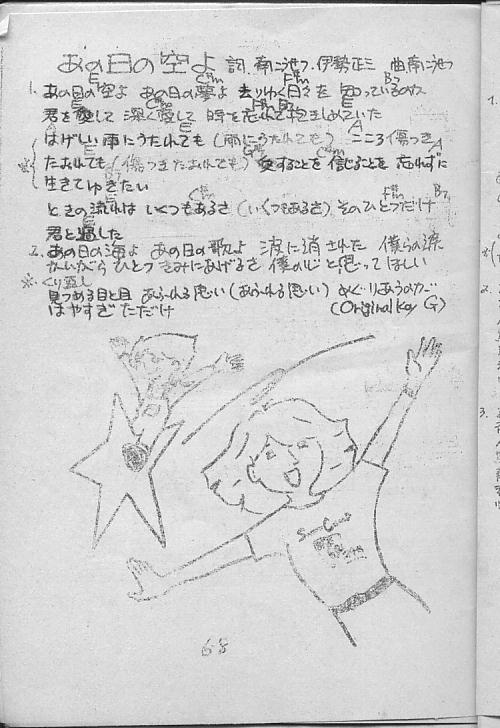 あの日の空よ 詞 南こうせつ・伊勢正三 曲 南こうせつ
E C#m F#m B7
1. あの日の空よ あの日の夢よ 去りゆく日々を 知っているのか
E C#m F#m B7 E
君を愛して 深く愛して 時を忘れて抱きしめていた
A E A
はげしい雨にうたれても (雨にうたれても) こころ傷つき
E G# C#m A
※ たおれても (傷つきたおれても) 愛することを 信じることを 忘れずに
B7
生きてゆきたい
E C#m F#m B7
ときの流れは いくつもあるさ (いくつもあるさ) そのひとつだけ
E
君と過した
2. あの日の海よ あの日の歌よ 波に消された 僕らの涙
かいがら ひとつ きみにあげるさ 僕の心と思ってほしい
※くり返し
見つめる目と目 あふれる思い (あふれる思い) めぐりあうのが
はやすぎただけ (Original Key G)
68